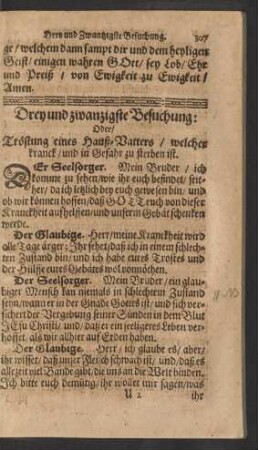 Drey und Zwantzigste Besuchung. 307
ge/ welchem dann sampt dir und dem heyligen
Geist/ einigen wahren GOtt/ sey Lob/ Ehr
und Preiß / von Ewigkeit zu Ewigkeit/
Amen.
Drey und zwanzigste Besuchung:
Oder/
Tröstung eines Hauß-Vatters/ welcher
kranck/ und in Gefahr zu sterben ist.
DEr Seelsorger. Mein Bruder / ich
komme zu sehen/ wie ihr euch befindet/ seit-
her/ da ich letzlich bey euch gewesen bin/ und
ob wir können hoffen/ daß GOTT euch von dieser
Kranckheit aufhelffen/ und unserm Gebät schencken
werde.
Der Glaubige. Herr/ meine Kranckheit wird
alle Tage ärger; Ihr sehet/ daß ich in einem schlech-
ten Zustand bin/ und ich habe eures Trostes und
der Hülffe eures Gebätes wol vonnöhten.
Der Seelsorger. Mein Bruder/ ein glau-
biger Mensch kan niemals in schlechtem Zustand
seyn/ wann er in der Gnade Gottes ist/ und sich ver-
sichert der Vergebung seiner Sünden in dem Blut
JEsu Christi/ und/ daß er ein seeligeres Leben ver-
hoffet/ als wir allhier auf Erden haben.
Der Glaubige. Herr/ ich glaube es/ aber/
ihr wisset/ daß unser Fleisch schwach ist/ und/ daß es
allezeit viel Bande gibt/ die uns an die Welt binden.
Ich bitte euch demütig/ ihr wollet mir sagen/ was
U 2 ihr